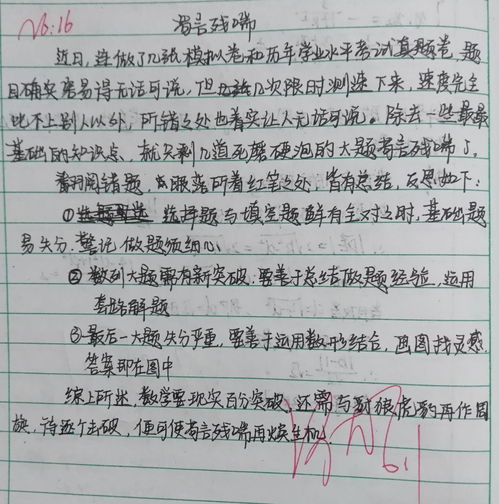 No:16
苟言残喘
近日,连做了几张模拟卷和历年学业水平考试真题卷,题
目确实容易得无话可说,但几次限时测速下来,速度完全
比不上别人以外,所错之处也着实让人无话可说。除去一些最最
基础的知识点,就只剩几道死磨硬泡的大题苟言残喘了。
翻阅错题,红笔之处,皆有总结,反思如下:
① 选择题与填空题鲜有全对之时,基础题
易失分,警记,做题须细心
② 数列大题需有新突破,要善于总结做题经验,运用
套路解题
③ 最后一大题失分严重,要善于运用数形结合,画图找灵感,
答案即在图中
综上所述,数学要现实百分突破,还需与豺狼虎豹再作周
旋,待逐个击破,便可使苟言残喘再焕生机
6.1